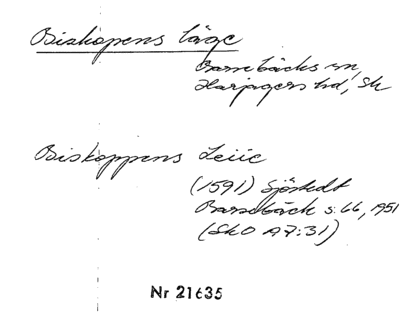 Biskopens läge
Barsebäcks sn,
Harjagers hd, Sk
Biskoppens Leiie
(1591) Sjöstedt
Barsebäck s. 66, 1951
(SkO A7:31)
Nr 21635